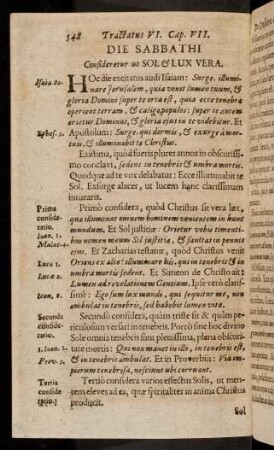 548 Tractatus VI. Cap. VII.
DIE SABBATHI
Consideretur ut SOL & LUX VERA.
Isaiæ 60. HOc die excitatus audi Isaiam: Surge. illumi-
nare Jerusalem, quia venit lumen tuum, &
gloria Domini super te orta est, quia ecce tenebræ
operient terram, & caligo populos: super te autem
orietur Dominus, & gloria ejus in te videbitur. Et
Ephes. 5. Apostolum: Surge. qui dormis, & exurge à mor-
tuis, & illuminabit te Christus.
Existima, quòd fueris plures annos in obscurissimo
conclavi, sedens in tenebris & umbra mortis.
Quodque ad te vox delabatur: Ecce illuminabit te
Sol. Exsurge alacer, ut lucem hanc clarissimam
intuearis.
Prima conside-
ratio. Primò considera, quòd Christus sit vera lux,
quæ illuminat omnem hominem venientem in hunc
Ioan. 1. mundum. Et Sol justitiæ: Orietur vobis timenti-
Malac. 4. bus nomen meum Sol justitiæ, & sanitas in pennis
ejus. Et Zacharias testatur, quòd Christus venit
Luca 1. Oriens ex alto: illuminare his, qui in tenebris & in
Lucæ 2. umbra mortis sedent. Et Simeon de Christo ait:
Lumen ad revelationem Gentium. Ipse verò clarissimè:
Ioan. 8. Ego sum lux mundi, qui sequitur me, non
ambulat in tenebris, sed habebit lumen vitæ.
Secunda conside-
ratio. Secundò considera, quàm triste sit & quàm
periculosum versari in tenebris. Porrò sine hoc divino
Sole omnia tenebris sunt plenissima, plena obscuri-
1. Ioan. 2. tate mortis: Qui non manet in illo, in tenebris est,
Prov. 4. & in tenebris ambulat. Et in Proverbiis: Via im-
piorum tenebrosa, nesciunt ubi corruant.
Tertia conside-
ratio. Tertiò considera varios effectus Solis, ut men-
tem eleves ad ea, quæ spiritaliter in anima Christus
producit.
Sol